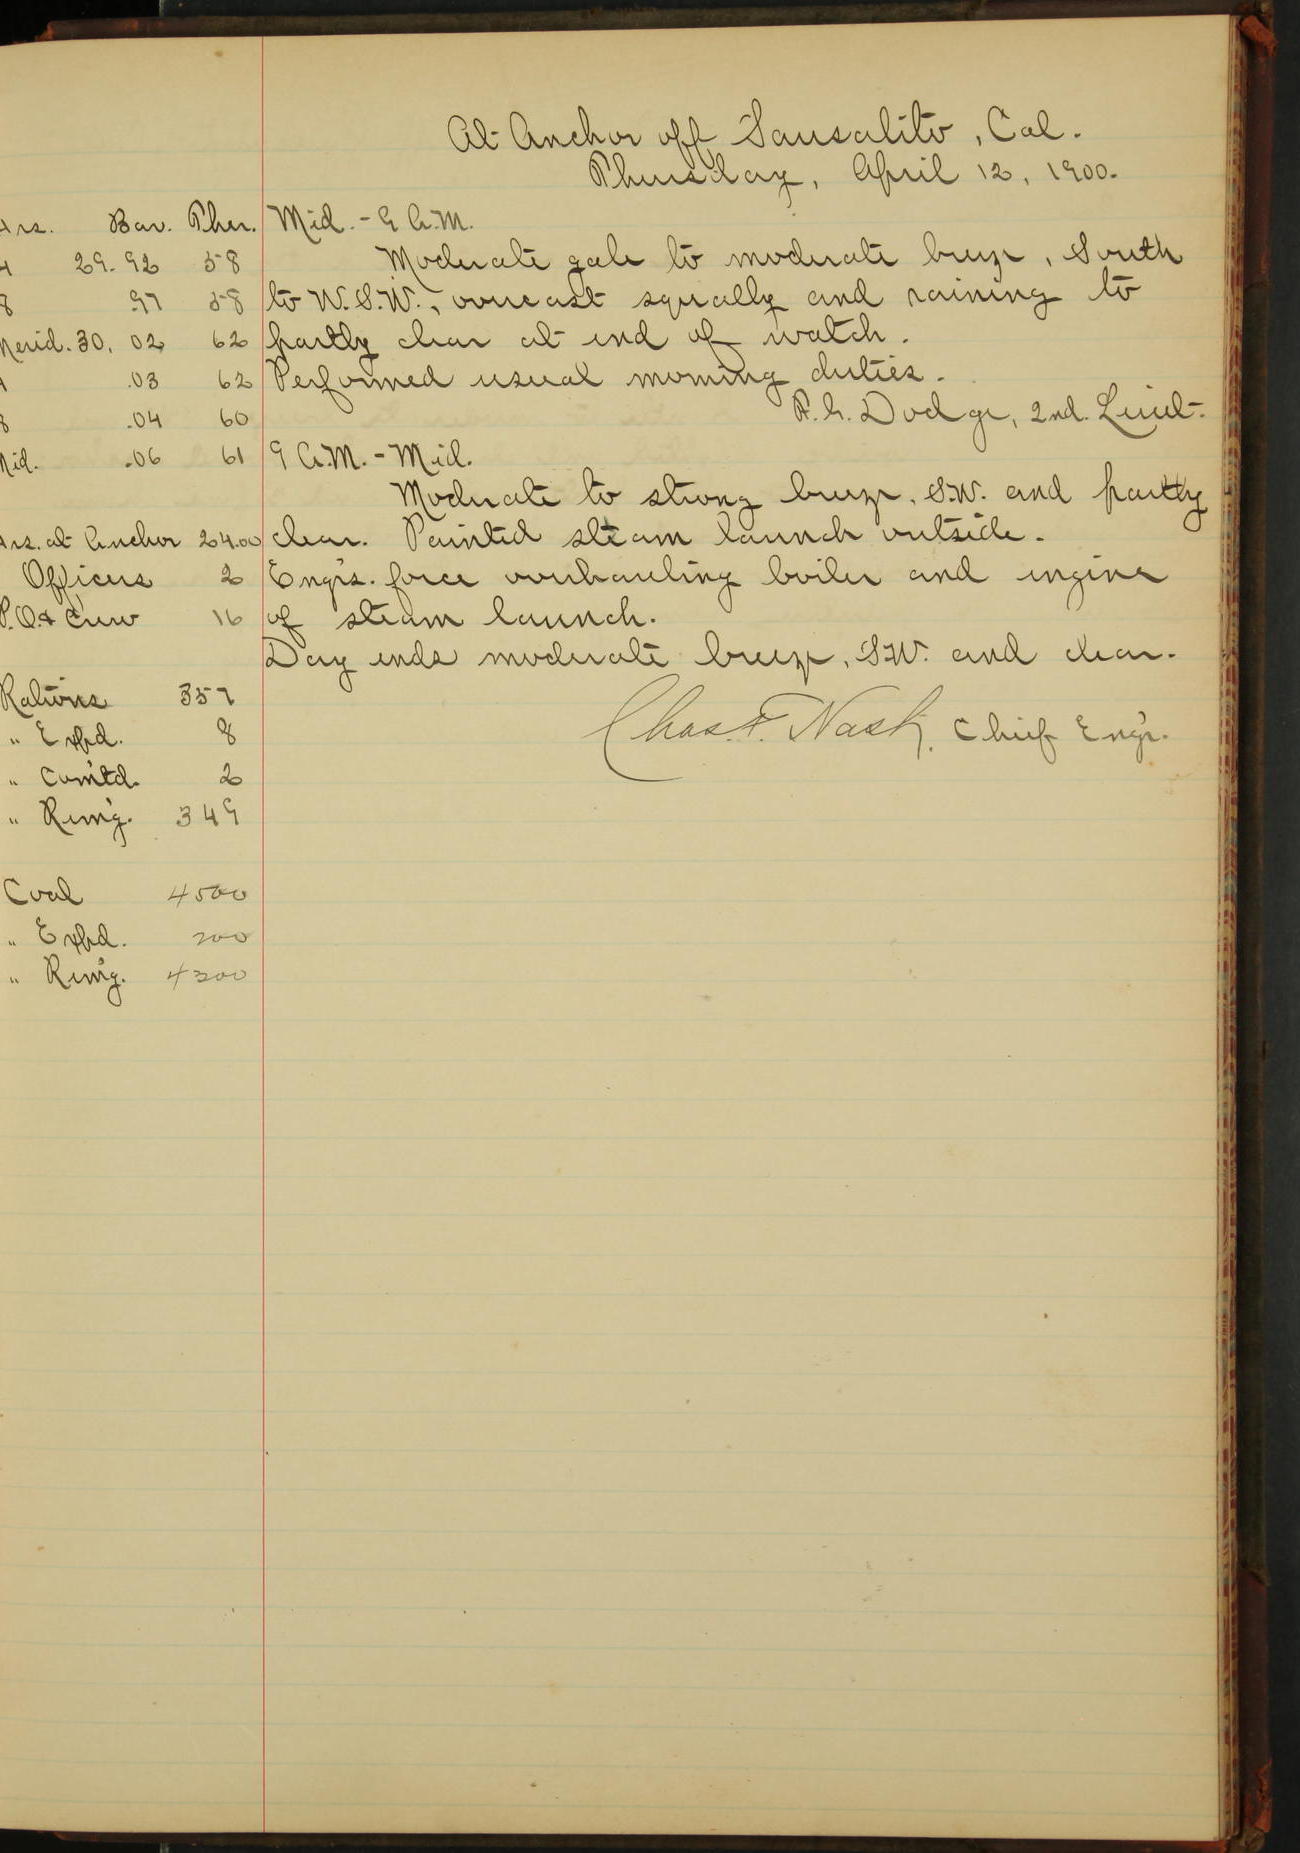 At Anchor off Sausalito, Cal.
Thursday, April 12, 1900.
Hrs. Bar. Ther.
4 29.92 58
8 .97 58
Merid. 30.02 62
4 .03 62
8 .04 60
Mid. .06 61
Hrs. at Anchor 24.00
Officers 2
P.O. & Crew 16
Rations 357
" Expd. 8
" Com'td. 2
" Rem'g. 349
Coal 4500
" Expd. 200
" Rem'g. 4300
Mid. - 9 A.M.
Moderate gale to moderate breeze, South
to W.S.W., overcast squally and raining to
partly clear at end of watch.
Performed usual morning duties.
Dodge, 2nd. Lieut.
9 A.M. - Mid.
Moderate to strong breeze, S.W. and partly
clear. Painted steam launch outside.
Eng'rs. force overhauling boiler and engine
of steam launch.
Day ends moderate breeze, S.W. and clear.
Chas. F. Nash, Chief Eng'r.